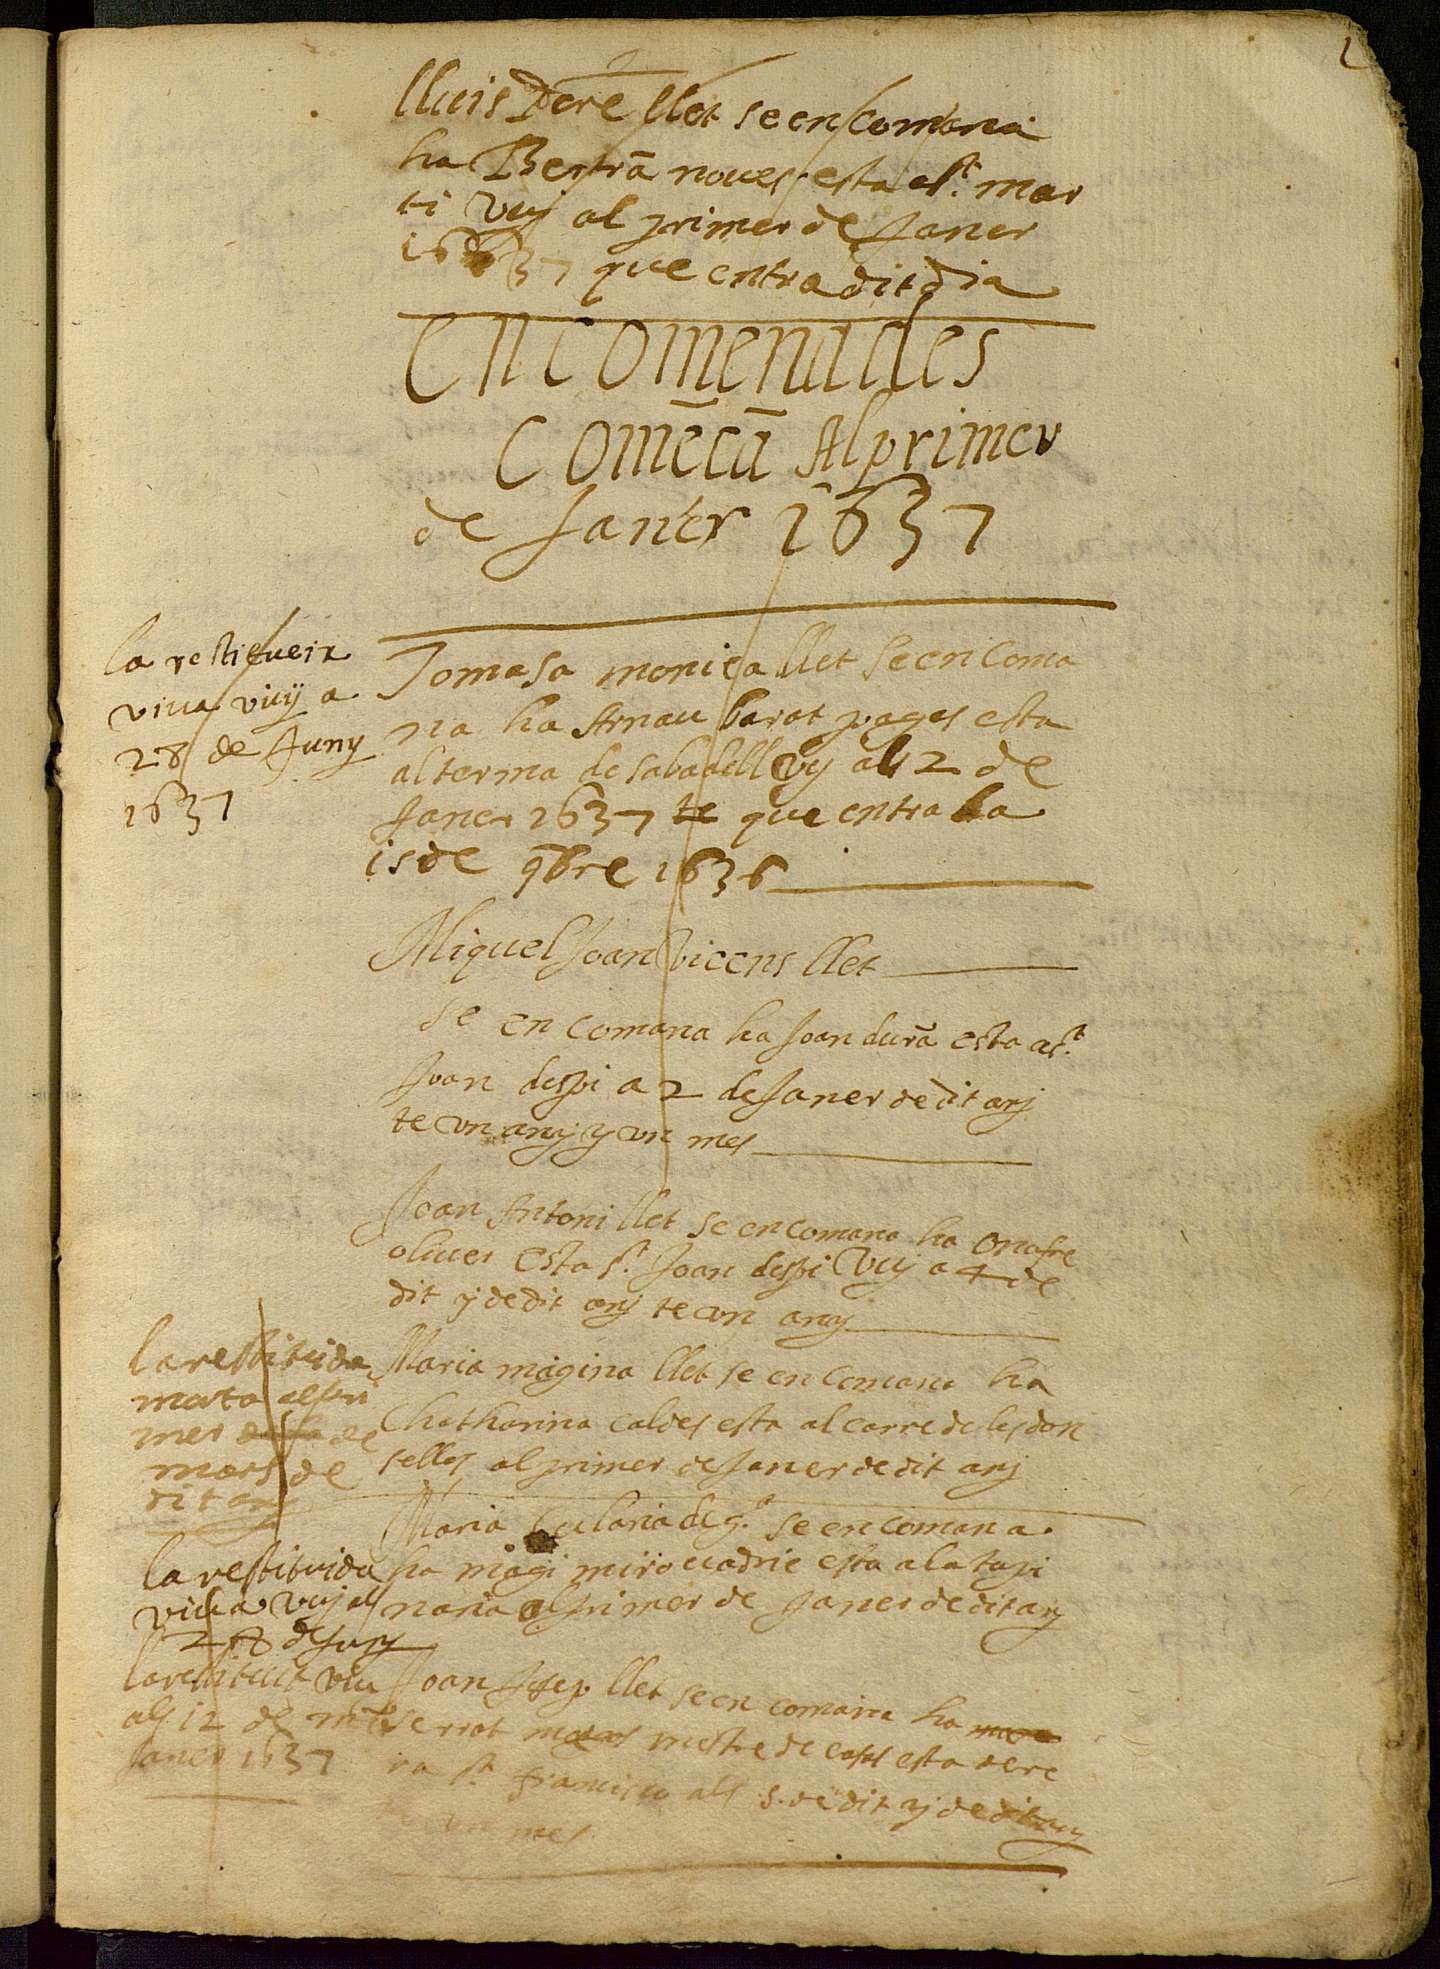 lluis Pere llet se en comana
ha Bertrã noues esta a St. mar
ti vuy al primer de Janer
1637 que entra dit dia
Encomenades
Comẽcã Al primer
de Janer 1637
la restitueix
viua vuy a
28 de Juny
1637
Tomasa monica llet se en Coma
na ha Arnau barat pages esta
al terma de sabadell vuy als 2 de
Janer 1637 te que entra ha
15 de 9bre 1636
Miquel Joan Vicens llet
se en comana ha Joan durã esta a St.
Joan despi a 2 de Janer de dit any
te vn any y vn mes
Joan Antoni llet se en comana ha Onofre
oliuer esta St. Joan despi Vuy a 4 de
dit y de dit any te vn any
la restituida
morta al pri
mer de
mars de
dit any
Maria magina llet se en Comana ha
Chatharina caldes esta al carre de les don
selles al primer de Janer de dit any
la restituida
viua vuy als
28 de Juny
Maria eularia de ga. se en comana
ha magi miro esta a la tapi
naria al primer de Janer de dit any
la restituit viu
als 12 de
Janer 1637
Joan Josep llet se en comana ha
serrat mestre de cases esta dere
ra St. francisco als 5 de dit y de dit any
vn mes